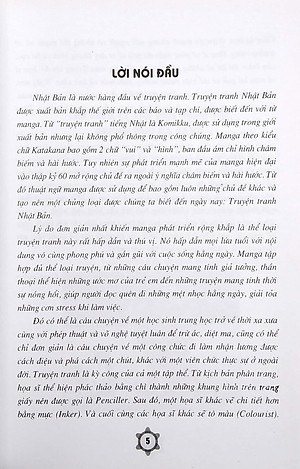 LỜI NÓI ĐẦU
Nhật Bản là nước hàng đầu về truyện tranh. Truyện tranh Nhật Bản
được xuất bản khắp thế giới trên các báo và tạp chí, được biết đến với từ
manga. Từ "truyện tranh" tiếng Nhật là Komikku, được sử dụng trong giới
xuất bản nhưng lại không phổ thông trong công chúng. Manga theo kiểu
chữ Katakana bao gồm 2 chữ "vui" và "hình", ban đầu ám chỉ hình châm
biếm và hài hước. Tuy nhiên sự phát triển mạnh mẽ của manga hiện đại
vào thập kỷ 60 mở rộng chủ đề ra ngoài ý nghĩa châm biếm và hài hước. Từ
đó thuật ngữ manga được sử dụng để bao gồm luôn những chủ đề khác và
tạo nên một chủng loại được chúng ta biết đến ngày nay: Truyện Tranh
Nhật Bản.
Lý do đơn giản nhất khiến manga phát triển rộng khắp là thể loại
truyện tranh này rất hấp dẫn và thú vị. Nó hấp dẫn mọi lứa tuổi với nội
dung vô cùng phong phú và gần gũi với cuộc sống hằng ngày. Manga tập
hợp đủ thể loại truyện, từ những câu chuyện mang tính giả tưởng, thần
thoại thể hiện những ước mơ của trẻ em đến những truyện mang tính thời
sự nóng hổi, giúp người đọc quên đi những mệt nhọc hằng ngày, giải tỏa
những cơn stress khi làm việc.
Đó có thể là câu chuyện về một học sinh trung học trở về thời xa xưa
cùng với phép thuật và võ nghệ tuyệt luân để trừ ác, diệt ma, cũng có thể
chỉ đơn giản là câu chuyện về một công chức đi làm nhận lương được
cách điệu và phá cách một chút, khác với một viên chức thực sự ở ngoài
đời. Truyện tranh là kỳ công của cả một tập thể. Từ kịch bản phân trang,
họa sĩ thể hiện phác thảo bằng chì thành những khung hình trên trang
giấy nên được gọi là Penciller. Sau đó, một họa sĩ khác vẽ chi tiết hơn
bằng mực (Inker). Và cuối cùng các họa sĩ khác sẽ tô màu (Colourist).
5